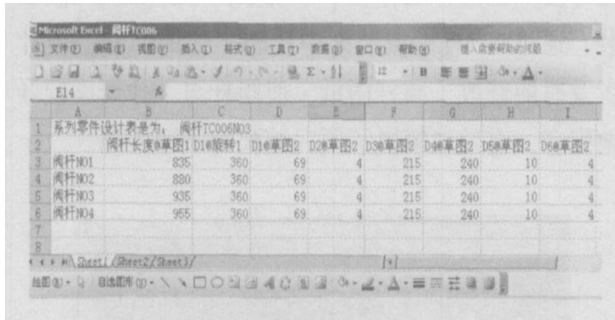 Microsoft Excel - 阀杆TC006
文件(F) 编辑(E) 视图(V) 插入(I) 格式(O) 工具(T) 数据(D) 窗口(W) 帮助(H) 键入需要帮助的问题
Σ 12 B A
E14 fx
A B C D E F G H I
1 系列零件设计表是为: 阀杆TC006NO3
2 阀杆长度@草图1 D1@旋转1 D1@草图2 D2@草图2 D3@草图2 D4@草图2 D5@草图2 D6@草图2
3 阀杆NO1 835 360 69 4 215 240 10 4
4 阀杆NO2 880 360 69 4 215 240 10 4
5 阀杆NO3 935 360 69 4 215 240 10 4
6 阀杆NO4 955 360 69 4 215 240 10 4
7
8
Sheet1 / Sheet2 / Sheet3 /
绘图(R) 自选图形(U) A